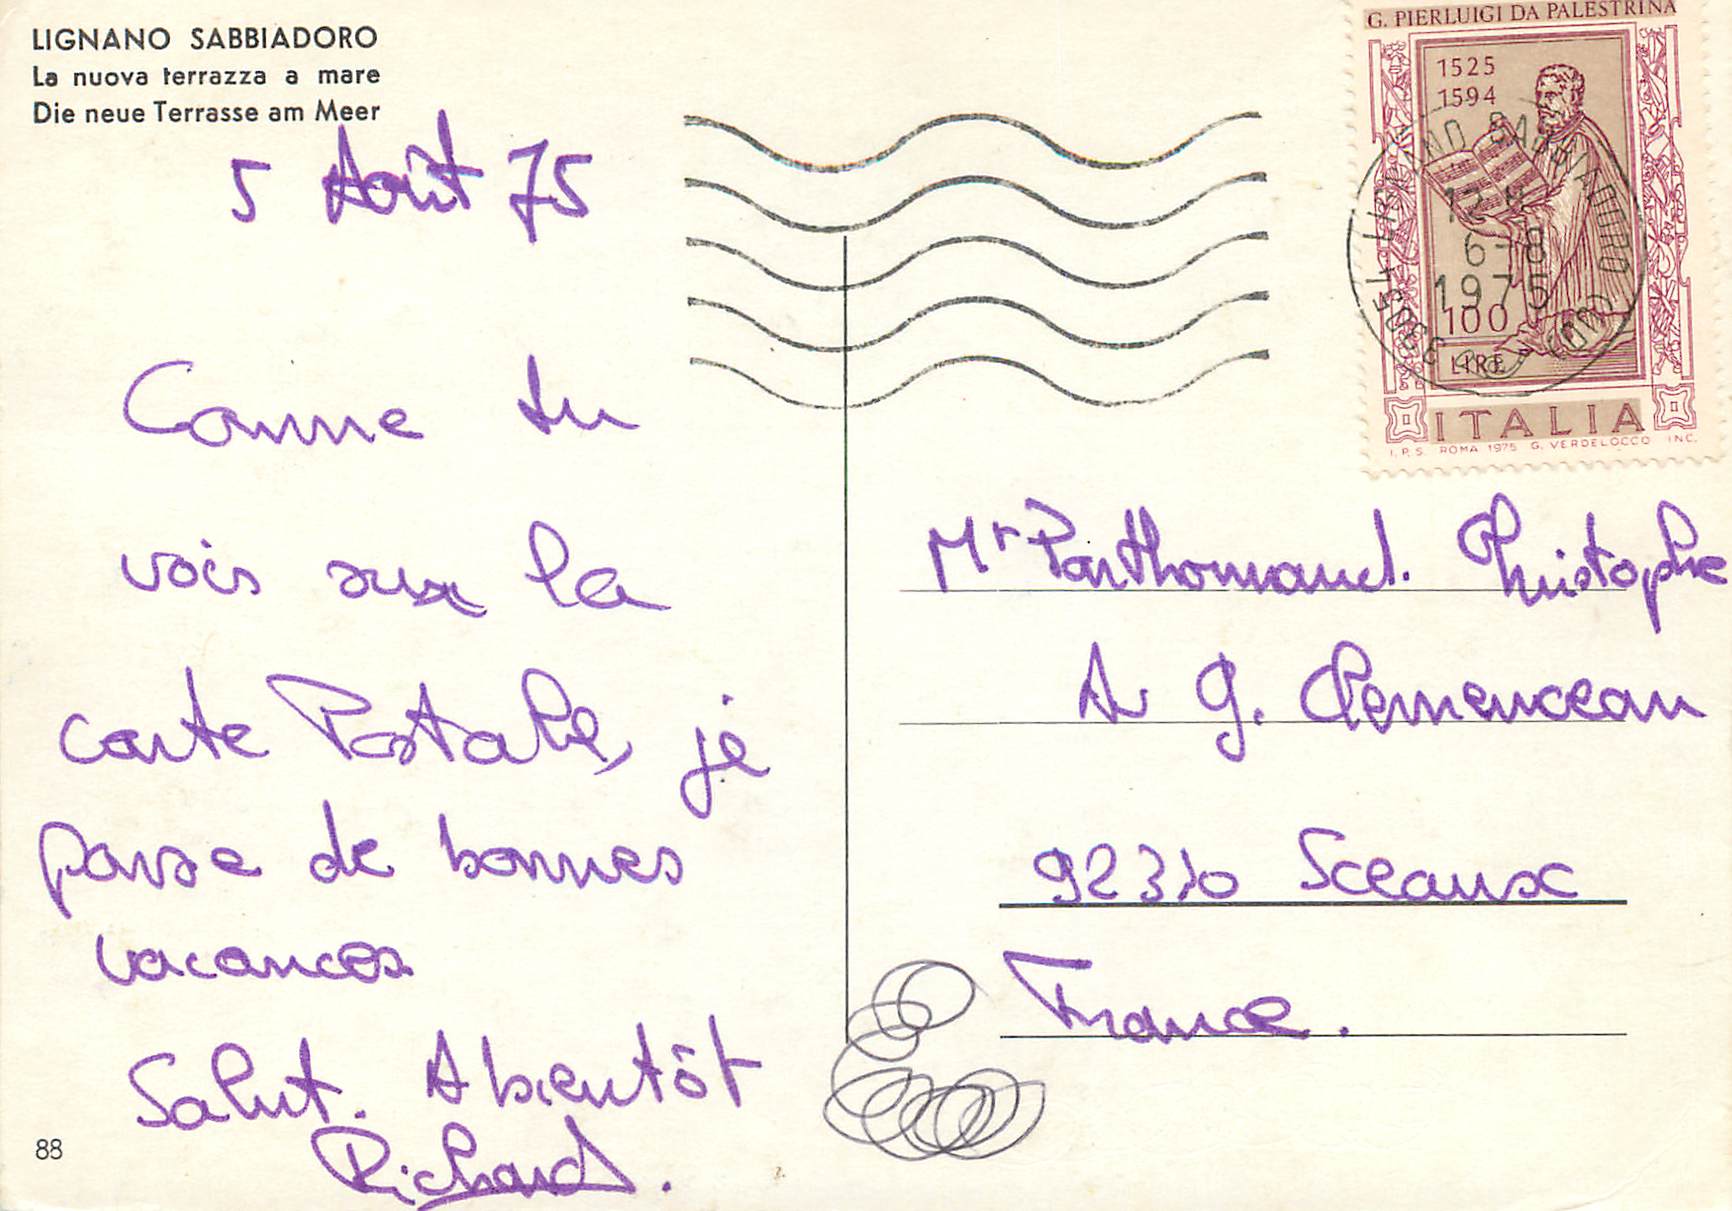 LIGNANO SABBIADORO
La nuova terrazza a mare
Die neue Terrasse am Meer
5 Août 75
Comme tu
vois sur la
carte Postale, je
passe de bonnes
vacances
Salut. A bientôt
Richard.
88
G. PIERLUIGI DA PALESTRINA
1525
1594
100
LIRE
ITALIA
I.P.S. ROMA 1975 G. VERDELOCCO INC.
LIGNANO SABBIADORO
12
6-8
1975
33054
(UD)
Mr Christophe
G. Clemenceau
Sceaux
France.